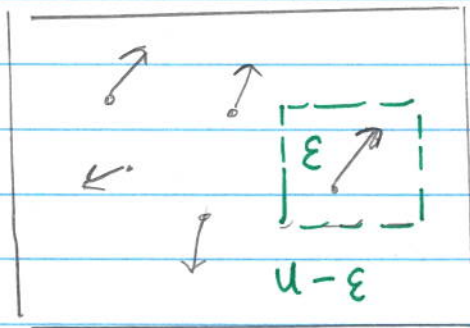 ε
U - ε